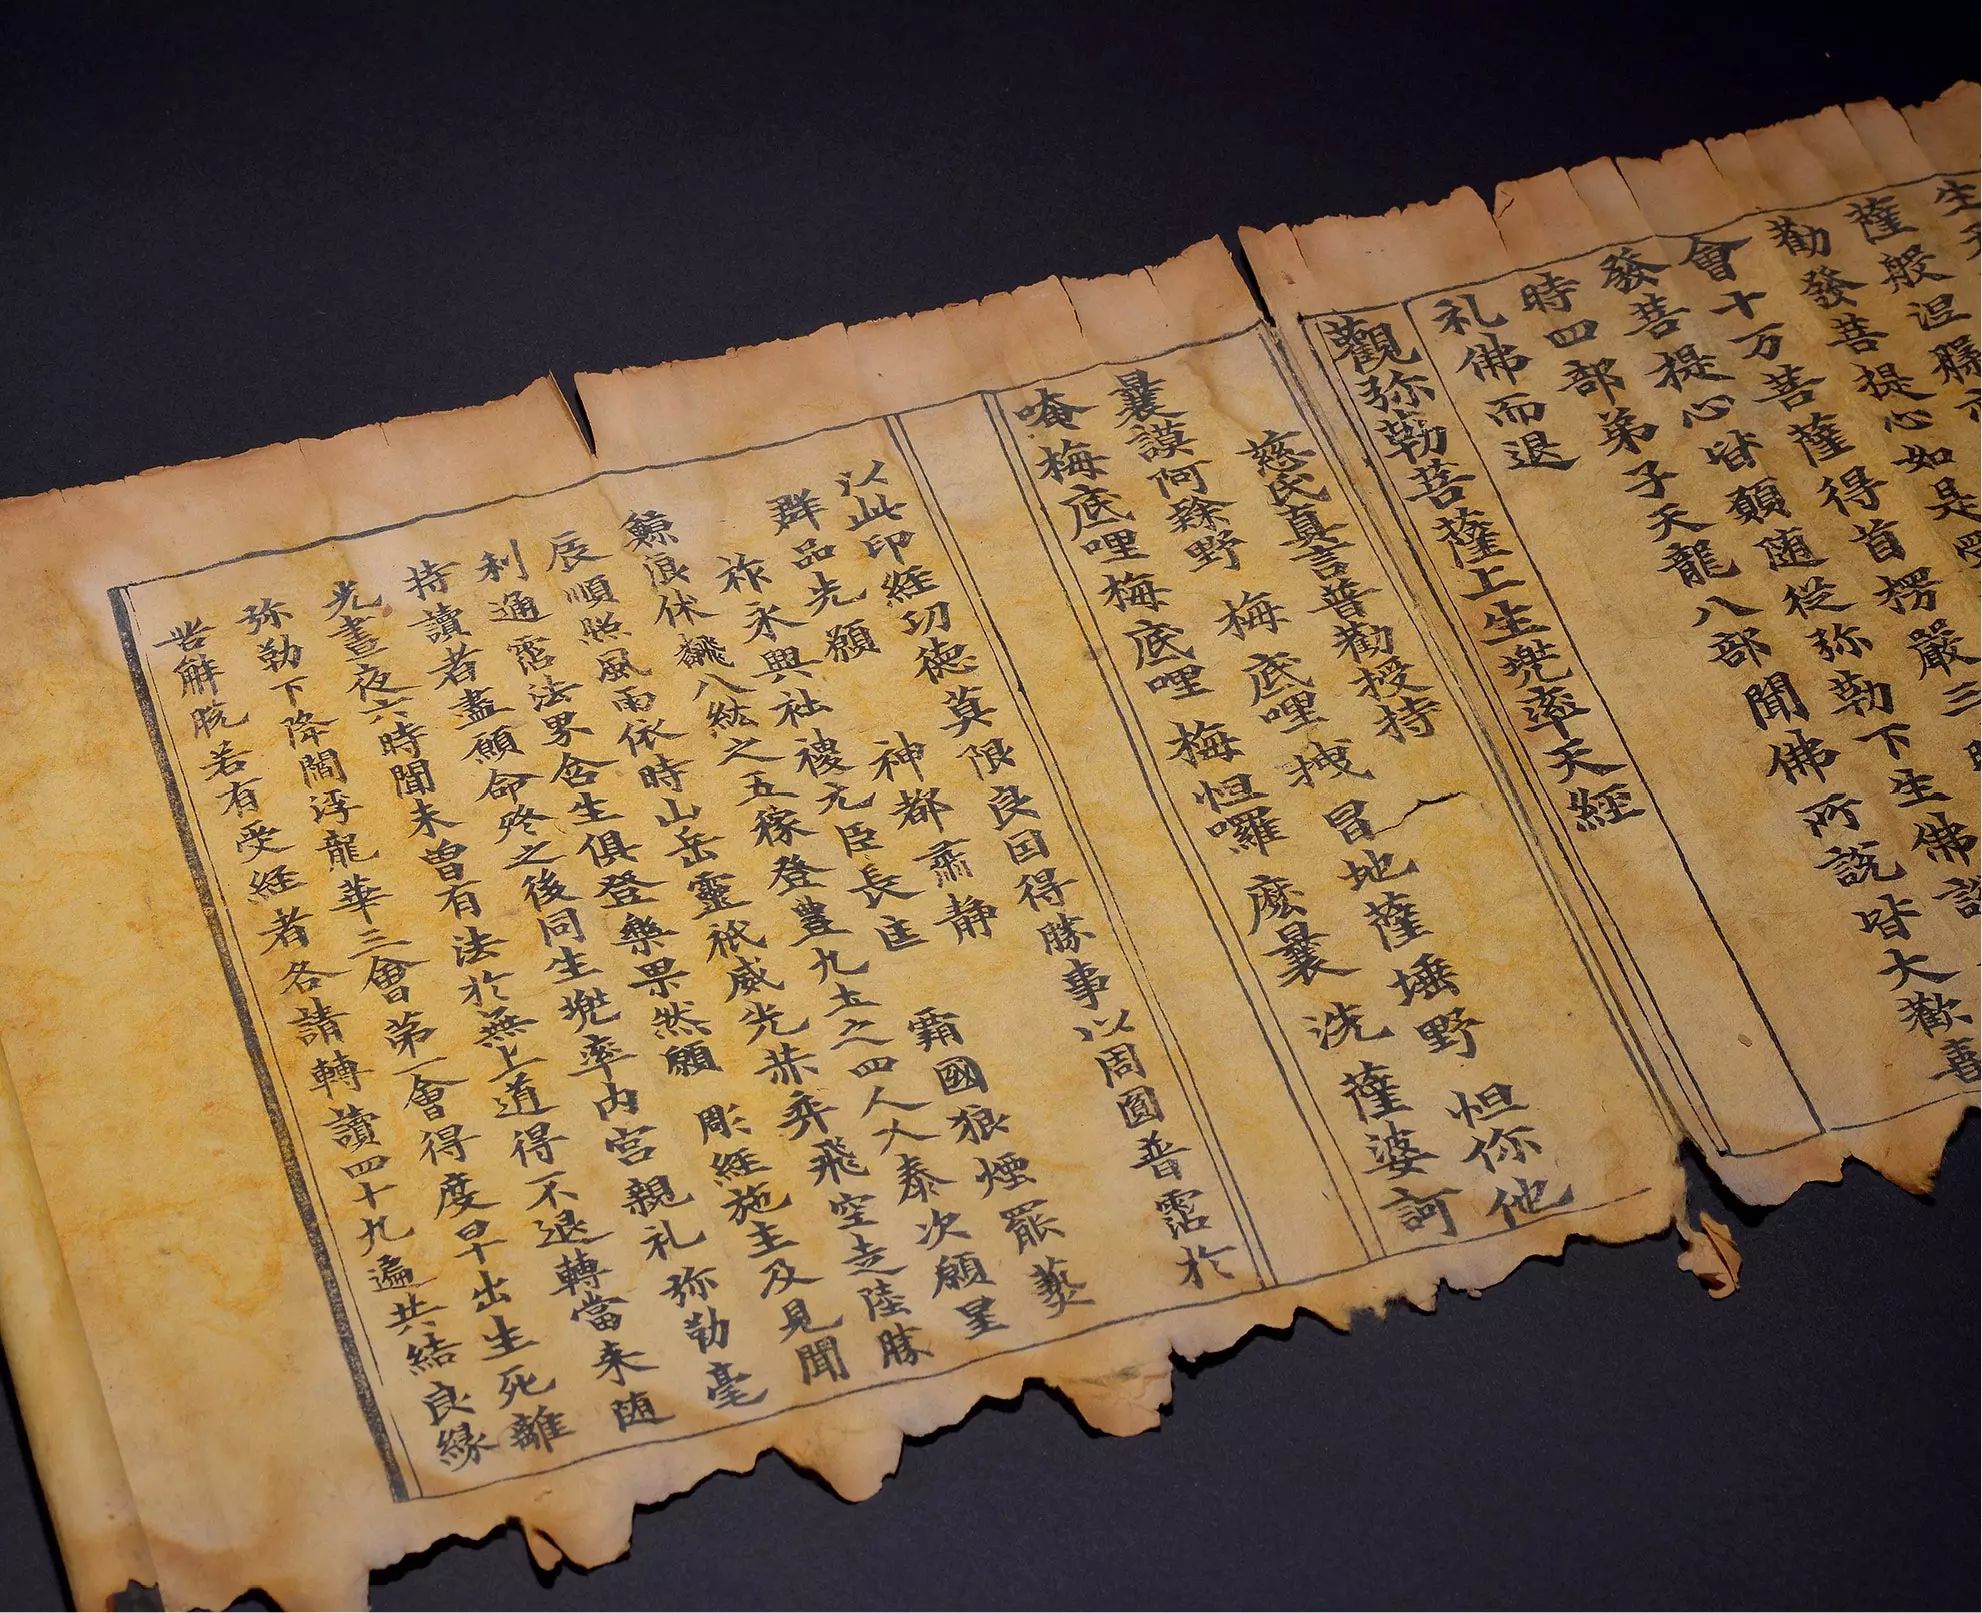 生
薩般涅
勸發菩提心如是受
會十万菩薩得首楞嚴三
發菩提心皆願随從弥勒下生佛說
時四部弟子天龍八部聞佛所說皆大歡喜
礼佛而退
觀弥勒菩薩上生兜率天經
慈氏真言普勸授持
曩謨阿隸野 梅底哩拽 冒地薩埵野 怛你他
唵梅底哩梅底哩 梅怛囉 麽曩 洗 薩婆訶
以此印經功德莫限良因得勝事以周圓普霑於
群品先願 神都肅静
祚永興社稷元臣長匡 霸國狼煙罷爇
鯨浪休飜八紘之五稼登豊九土之四人乂泰次願星
辰順照風雨依時山岳靈祇威光赫弈飛空走陸勝
利通霑法界含生俱登樂果然願 彫經施主及見聞
持讀者盡願命終之後同生兜率内宮親礼弥勒毫
光晝夜六時聞未曾有法於無上道得不退轉當来随
弥勒下降閻浮龍華三會第一會得度早出生死離
苦解脫若有受經者各請轉讀四十九遍共結良緣